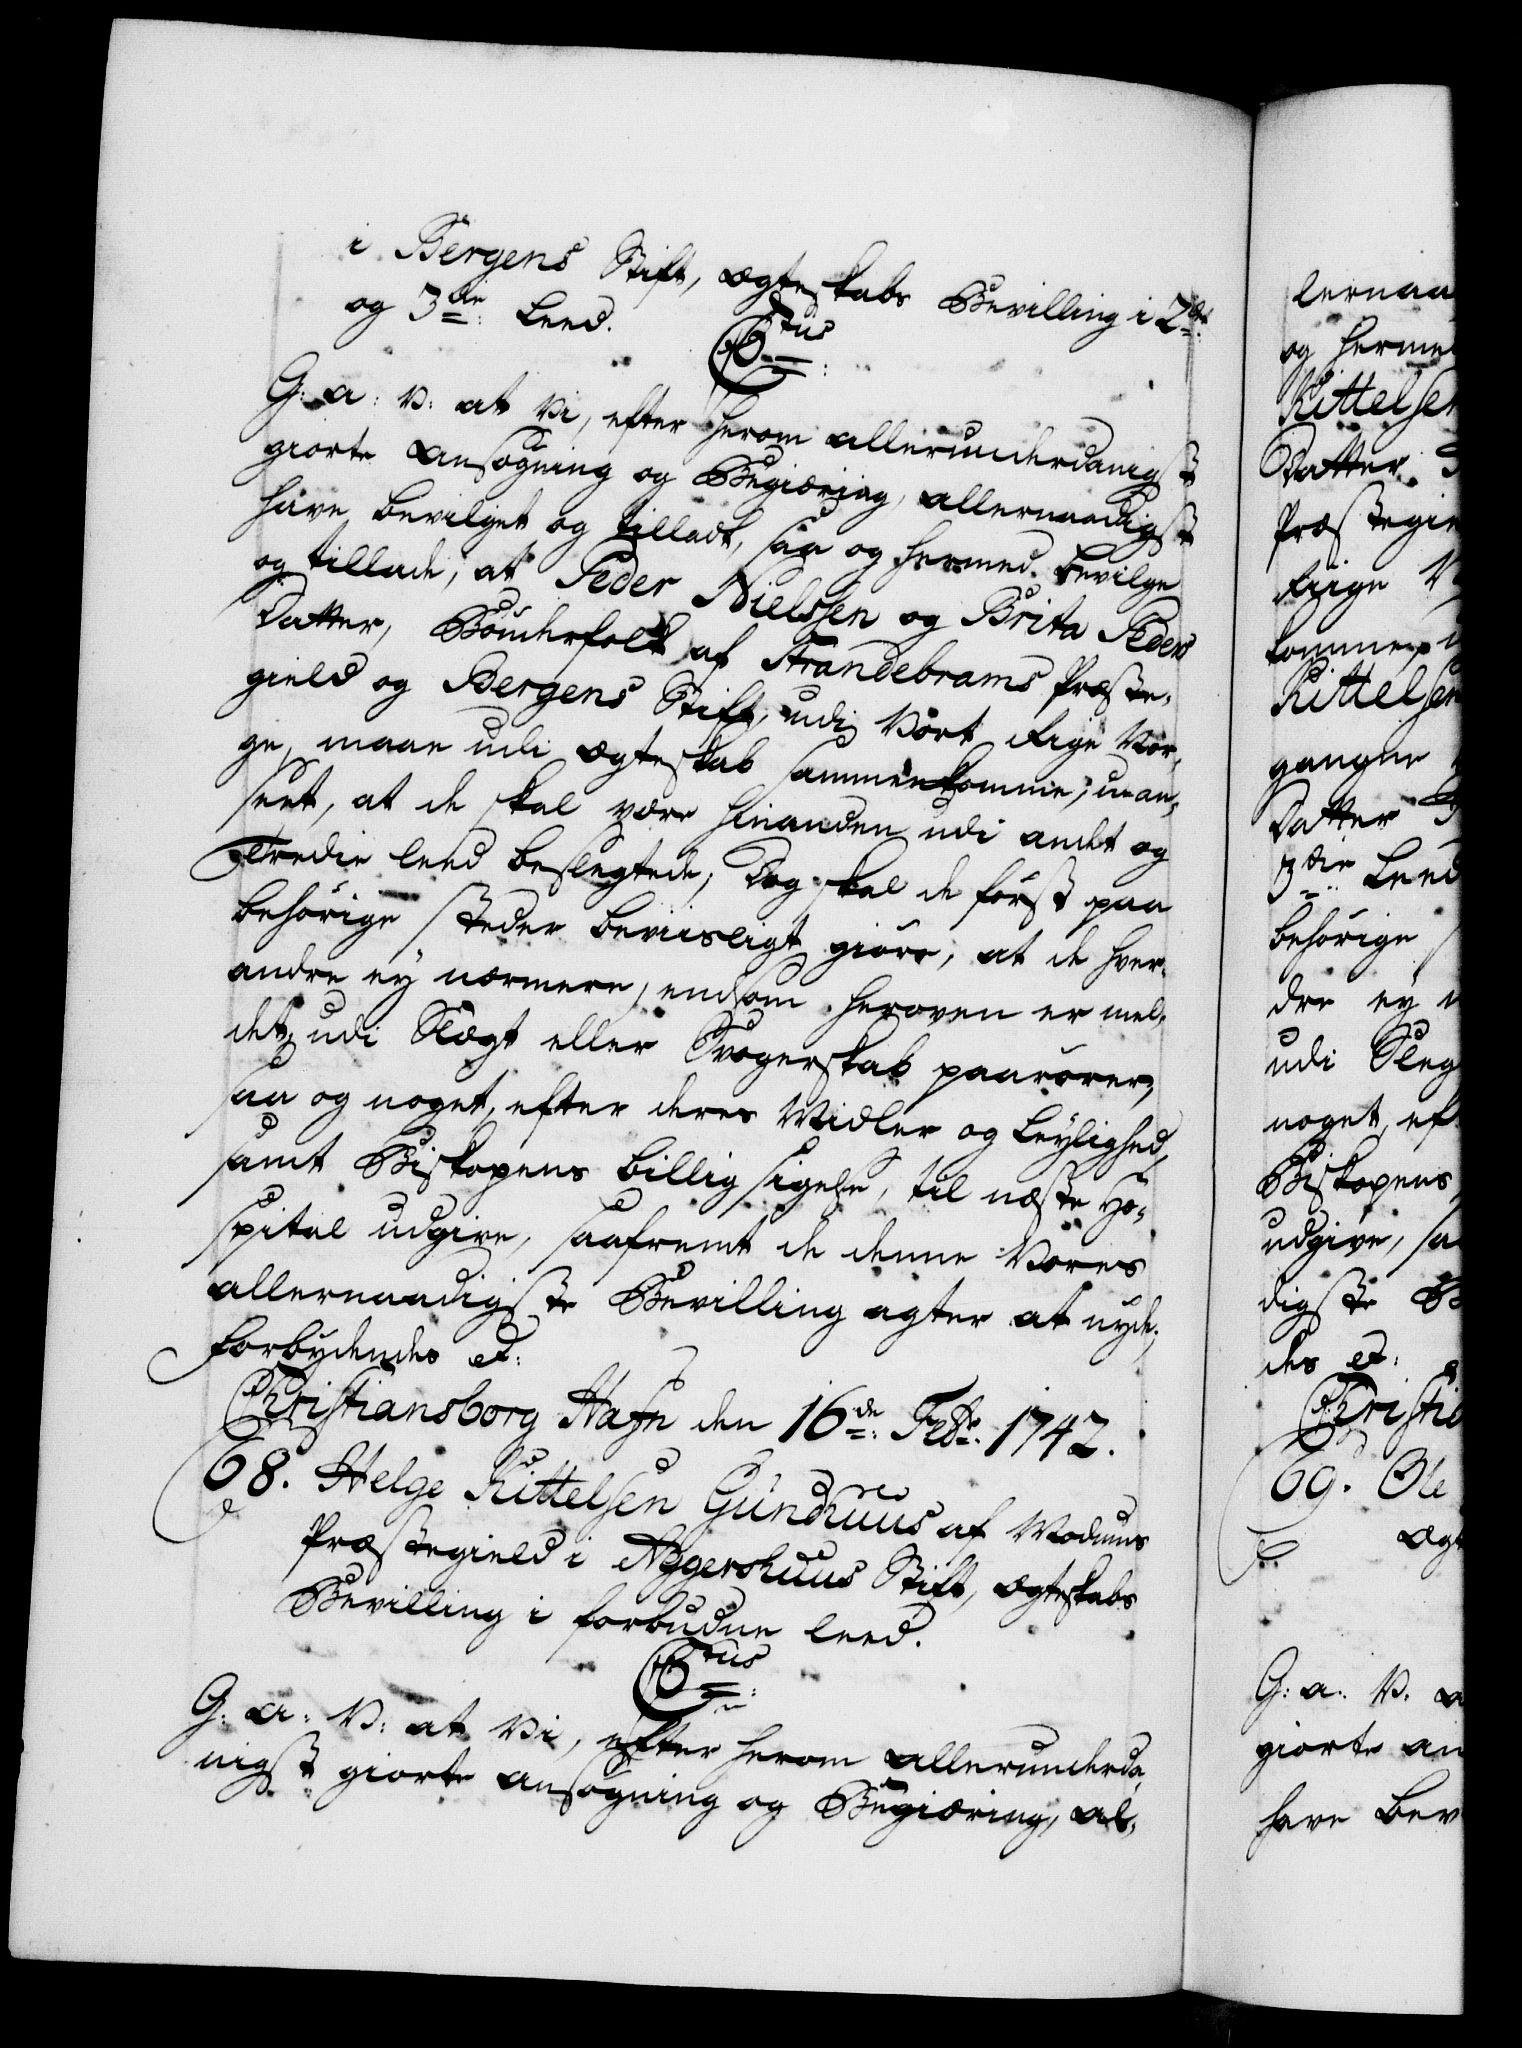 i Bergens Stift, Ægteskabs Bevilling i 2det
og 3die Leed.
C6tus
G: a: V: at Vi, efter herom allerunderdanigst
giorte Ansøgning og Begiæring, allernaadigst
have bevilget og tilladt, saa og hermed bevilge
og tillade, at Peder Nielssen og Brita Peders
Datter, Bønderfolk af Strandebrams Præste,
gield og Bergens Stift, udi Vort Rige Nor,
ge, maae udi Ægteskab sammenkomme, uan,
seet, at de skal være hinanden udi andet og
Tredie Leed beslegtede; Dog skal de først paa
behørige steder beviisligt giøre, at de hver,
andre ey nærmere, end som heroven er mel,
det, udi Slægt eller Svogerskab paarører,
saa og noget, efter deres Midler og Leylighed,
samt Biskopens billig sigelse, til næste Ho,
spital udgive, saafremt de denne Vores
allernaadigste Bevilling agter at nyde;
forbydendes et:
Christiansborg Hafn den 16de Febr: 1742.
68. Helge Kittelsen Gundhuus af Modums
Præstegield i Aggershuus Stift, Ægteskabs
Bevilling i forbudne Leed.
C6tus
G: a: V: at Vi, efter herom allerunderda,
nigst giorte ansøgning og Begiæring, al,
lernaa
og herme
Kittelsen
Datter
Præstegie
Rige N
komme,
Kittelsen
gangne
Datter
3die Leed
behørige
dre ey n
udi Sleg
noget, ef
Biskopens
udgive, sa
digste B
des et:
Christia
69. Ole
Ægt
G: a: V: a
giorte an
have bev